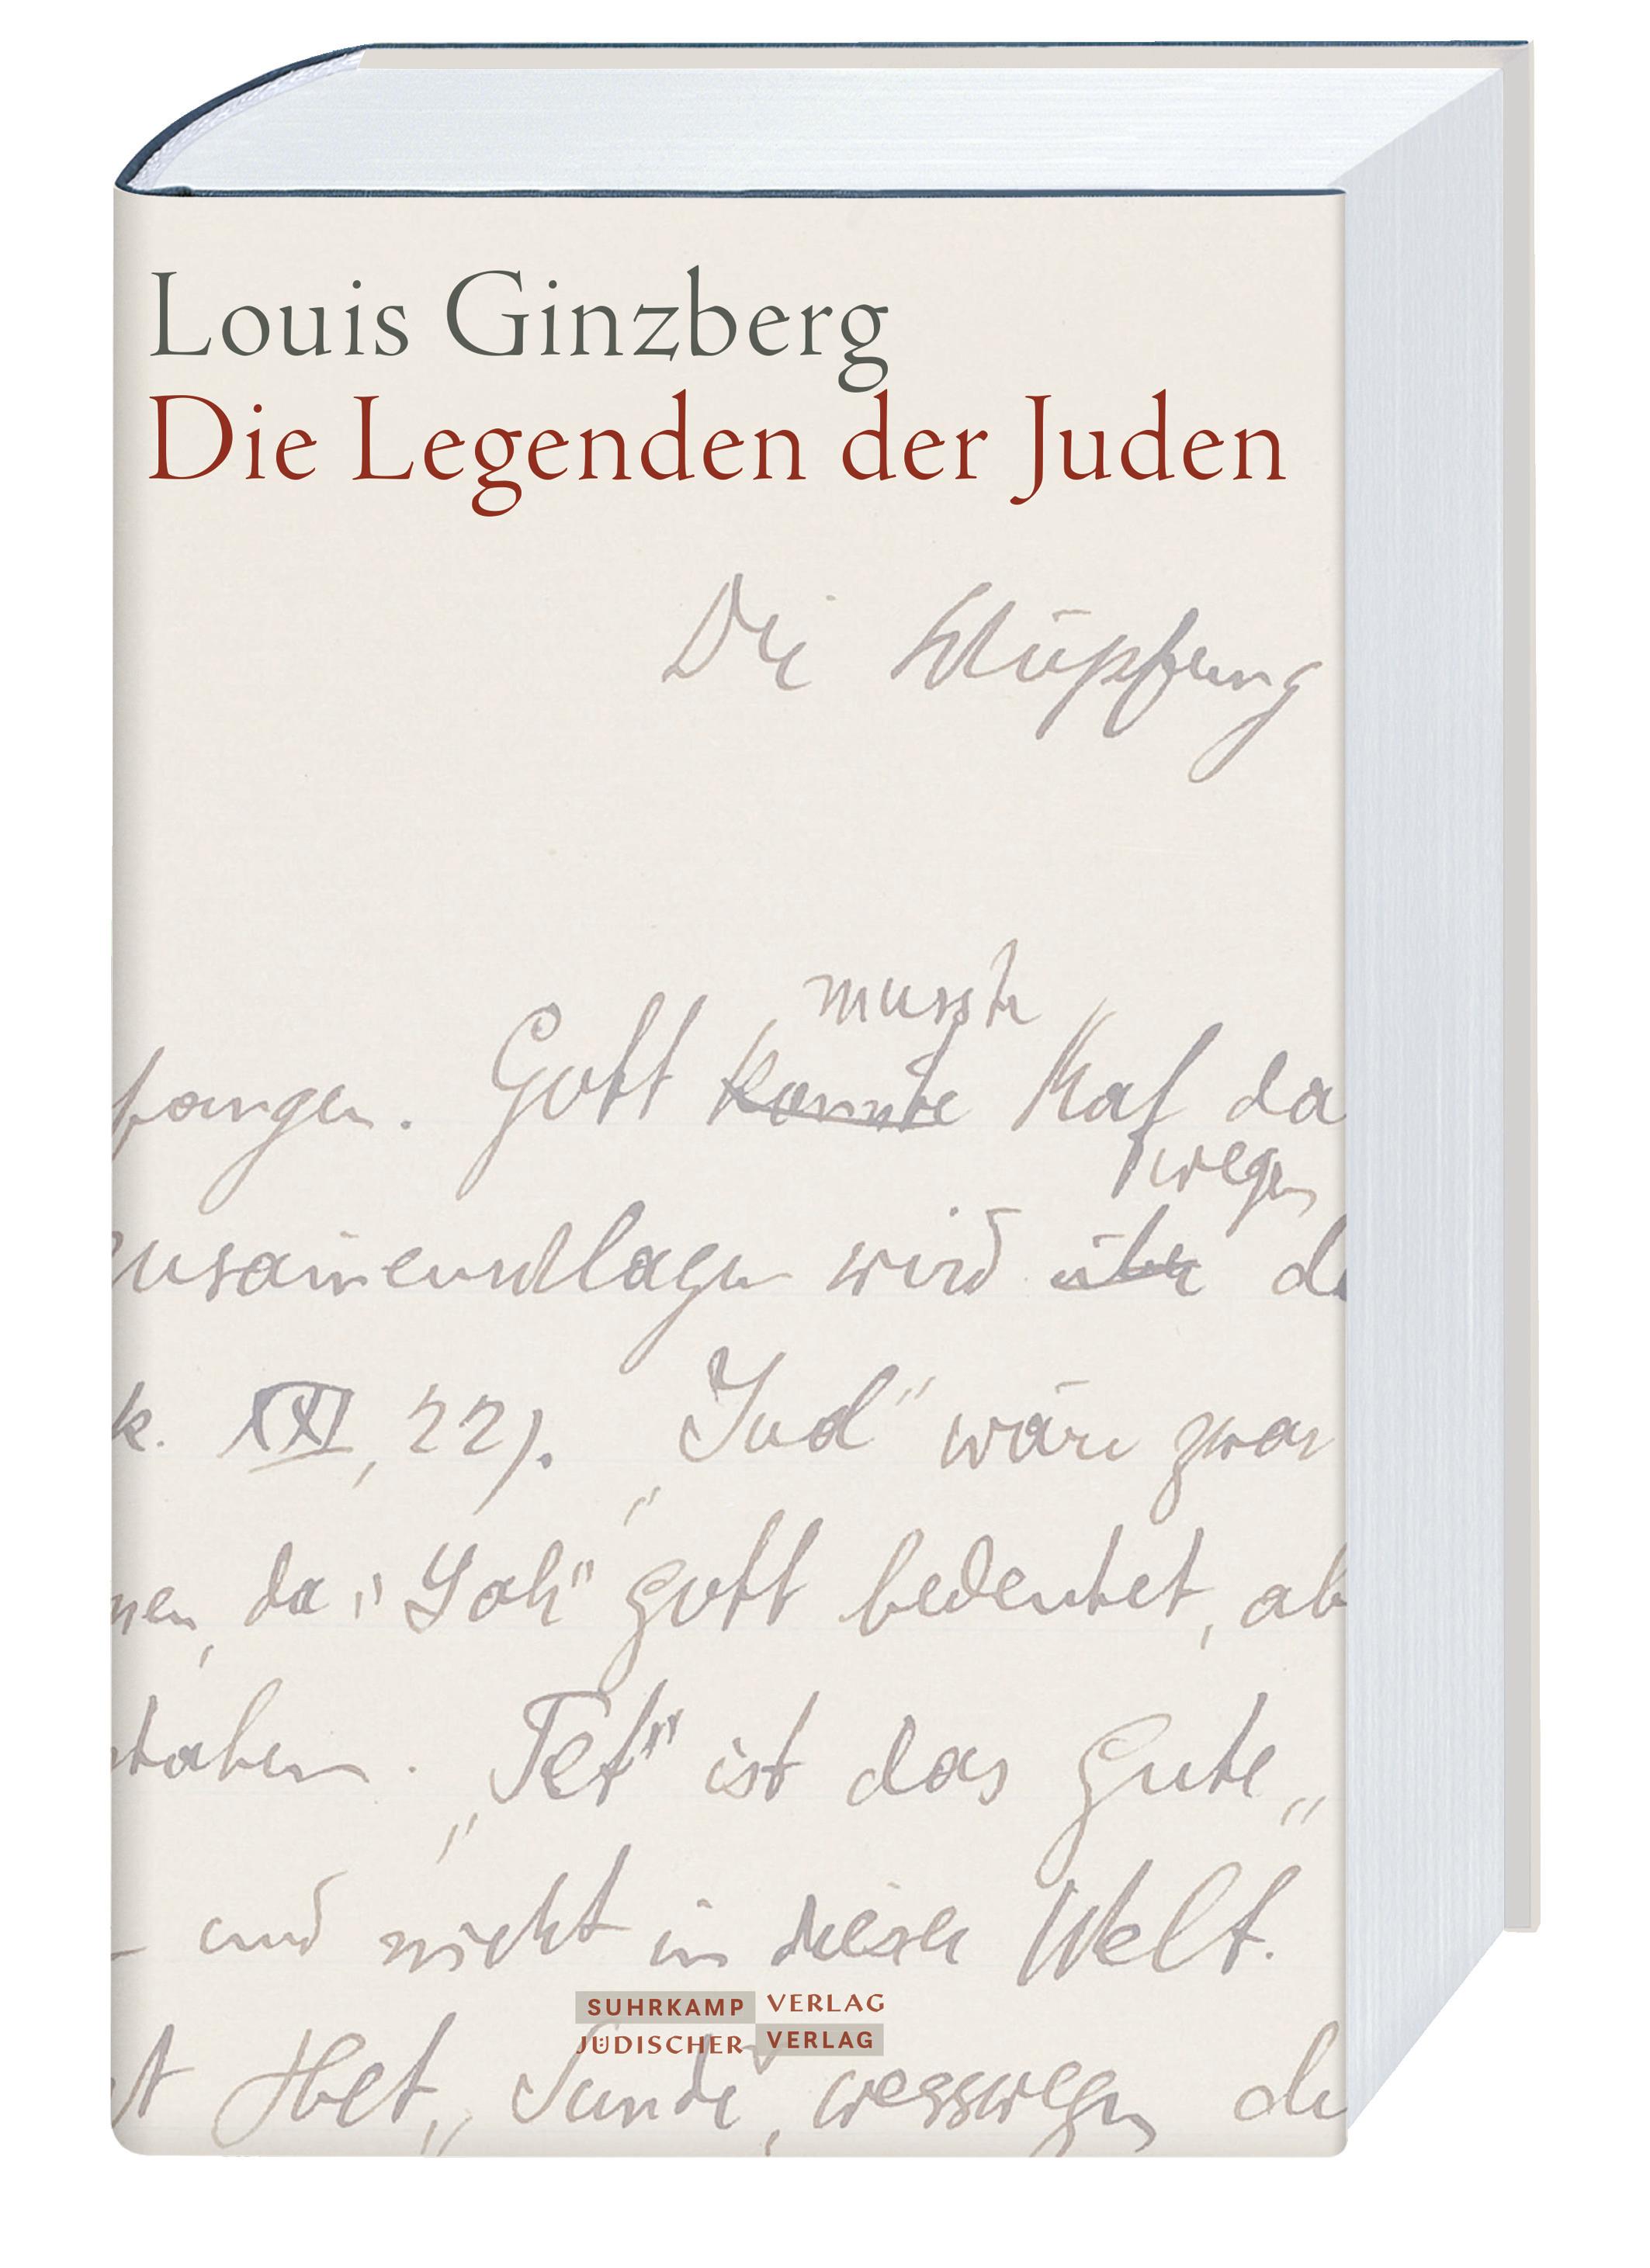 Louis Ginzberg
Die Legenden der Juden
Die Schöpfung
musste
fangen. Gott konnte Kaf da
wegen
zusammenschlagen wird über de
k. XXI, 22). „Jud" wäre zwar
nen, da „Yah" Gott bedeutet, ab
staben. „Tet" ist das Gute„
– und nicht in dieser Welt.
SUHRKAMP VERLAG
JÜDISCHER VERLAG
t Het„ Sünde, wesswegen de